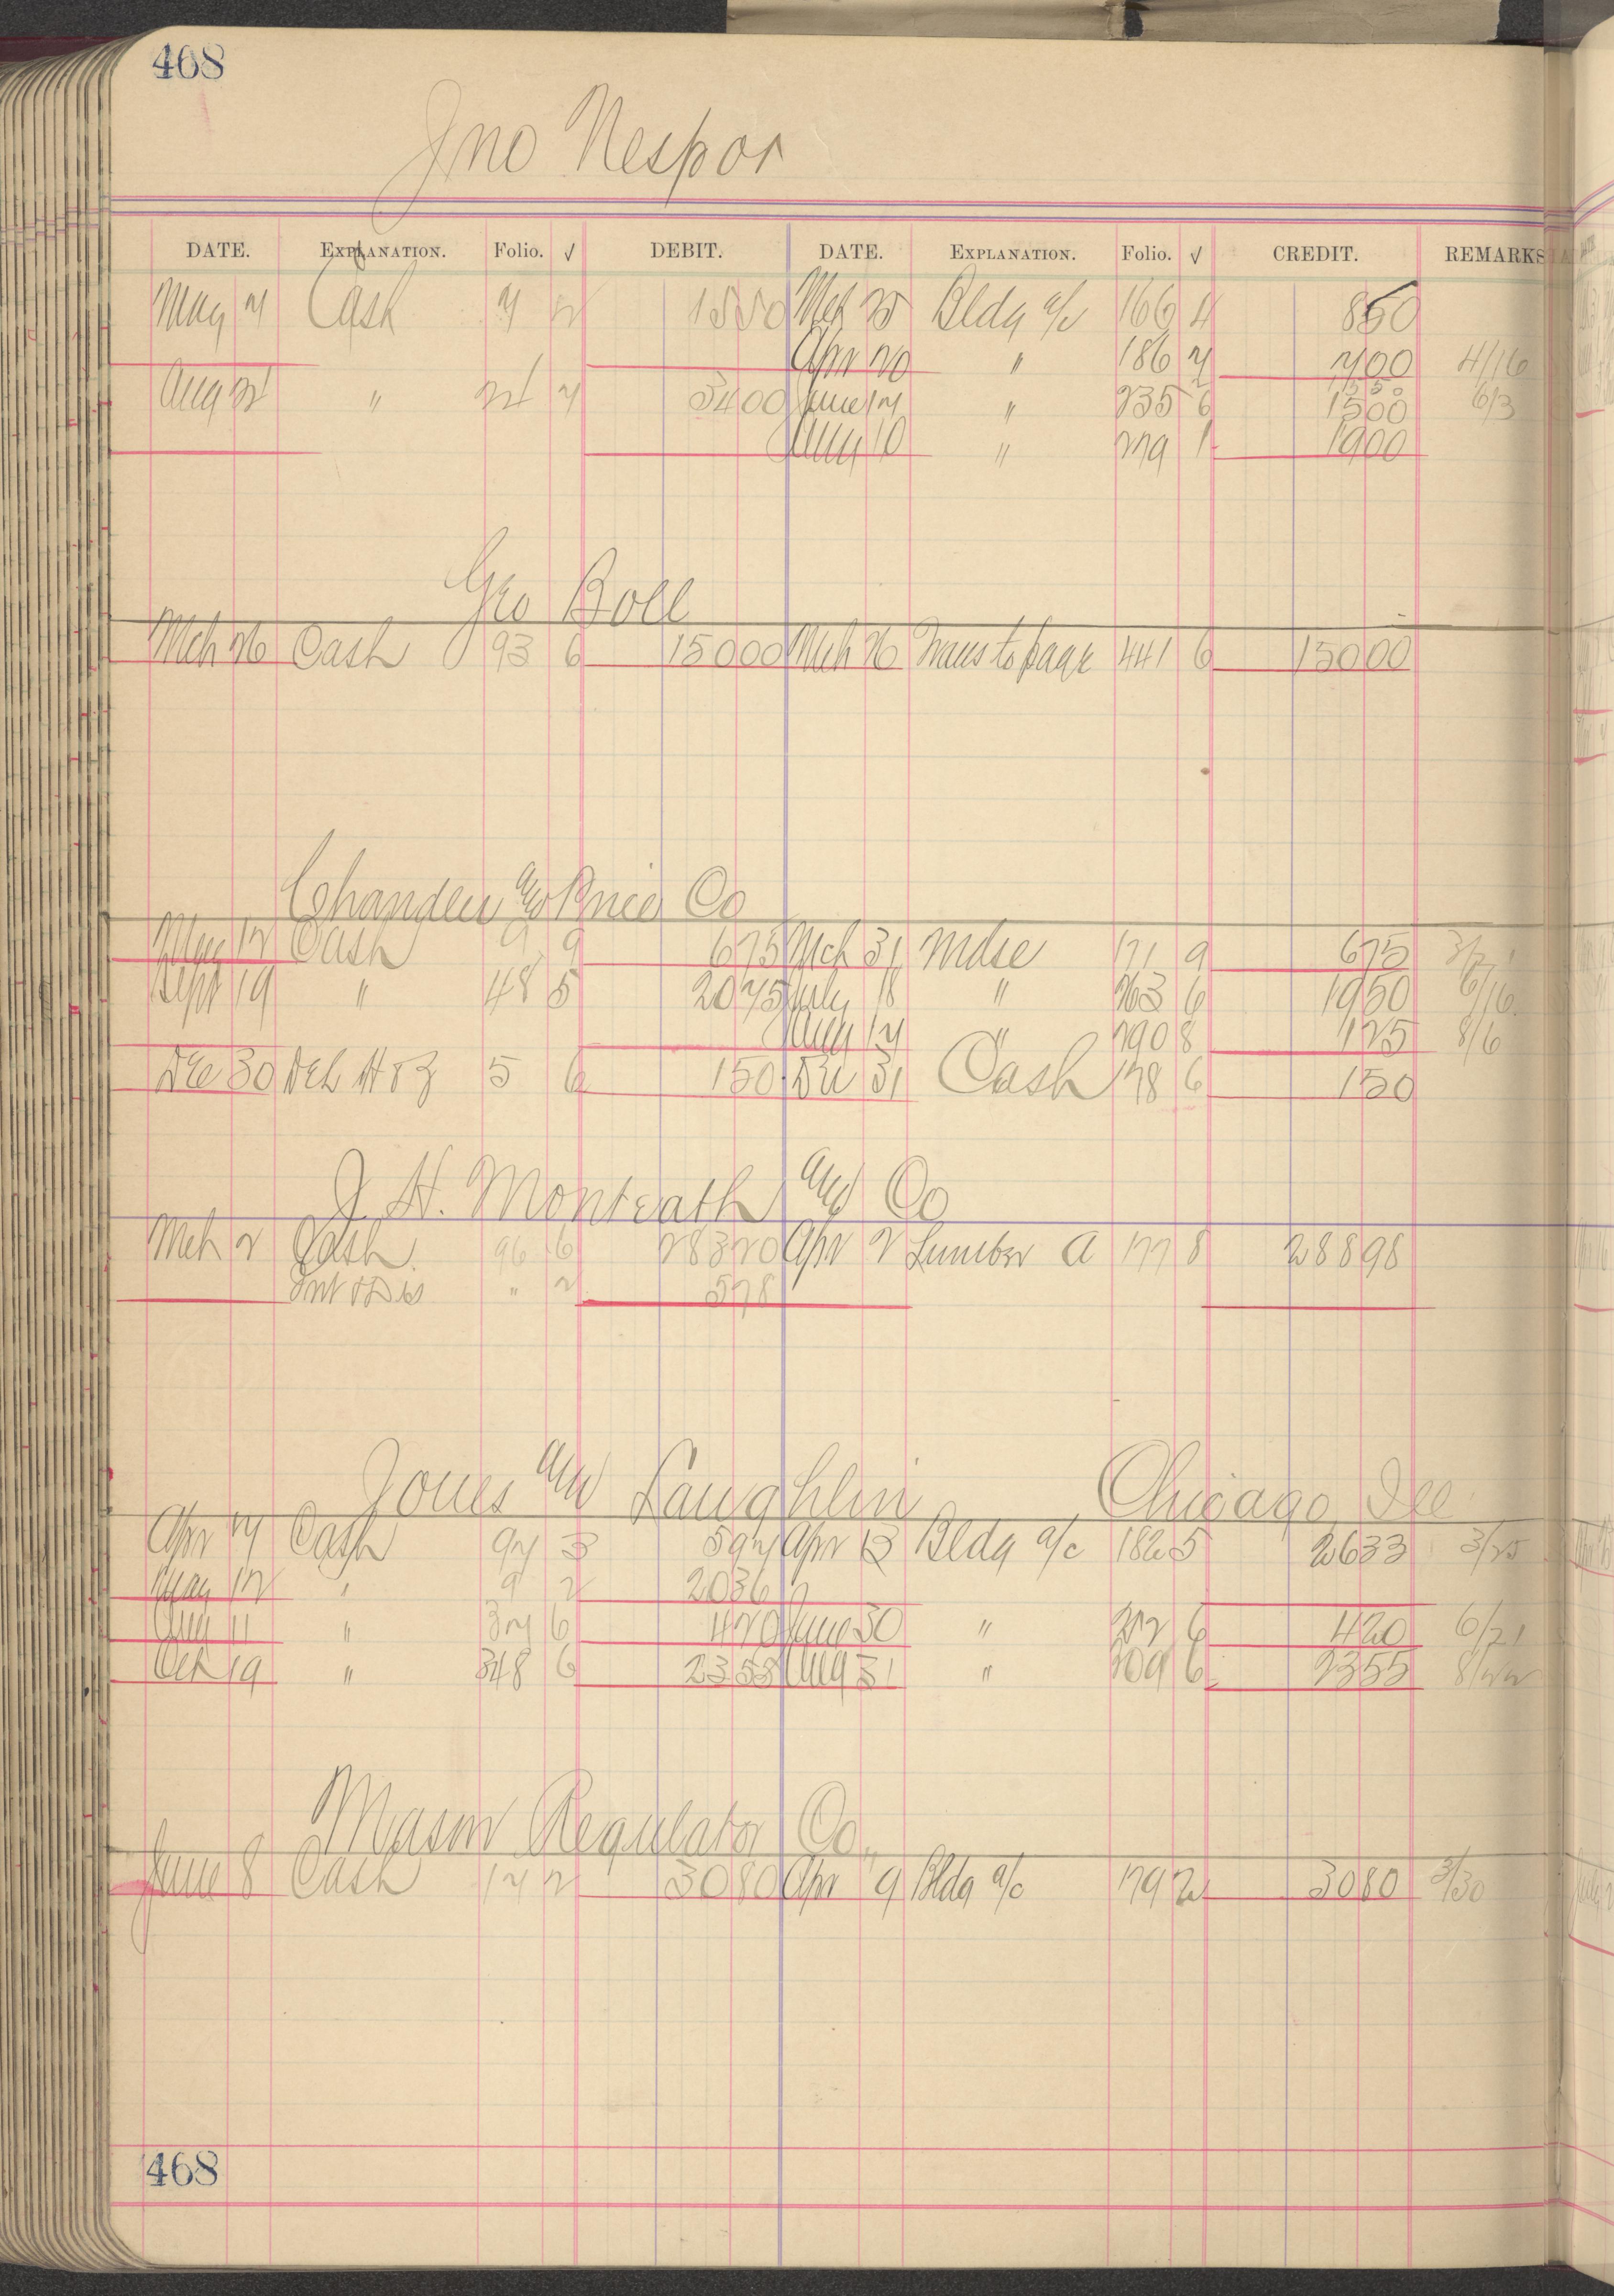 468
Jno Nespor
DATE. EXPLANATION. Folio. √ DEBIT. DATE. EXPLANATION. Folio. √ CREDIT. REMARKS
May 7 Cash 7 2 1550 Mch 25 Bldg a/c 166 4 850
Apr 20 " 186 7 700 4/16
1550
Aug 21 " 21 7 3400 June 17 " 235 6 1500 6/3
Aug 10 " 279 1 1900
Geo Boll
Mch 26 Cash 93 6 15000 Mch 26 Trans to page 441 6 15000
Chandler and Price Co
May 12 Cash 9 9 675 Mch 31 Mdse 171 9 675
Sept 19 " 48 5 2075 July 18 " 263 6 1950 6/16
Aug 17 " 290 8 125 8/6
Dec 30 5 6 150 Dec 31 Cash 178 6 150
J. H. Montrath and Co
Mch 2 Cash 96 6 28320 Apr 2 Lumber A 177 8 28898
Int & Dis " 2 578
Jones and Laughlin Chicago Ill
Apr 17 Cash 97 3 597 Apr 13 Bldg a/c 182 5 2633 3/25
May 12 " 9 2 2036
11 " 37 6 420 June 30 " 6 420 6/21
Oct 19 " 348 6 2355 Aug 31 " 309 6 2355 8/22
Mason Regulator Co.,
June 8 Cash 17 2 3080 Apr 9 Bldg a/c 179 2 3080 3/30
468